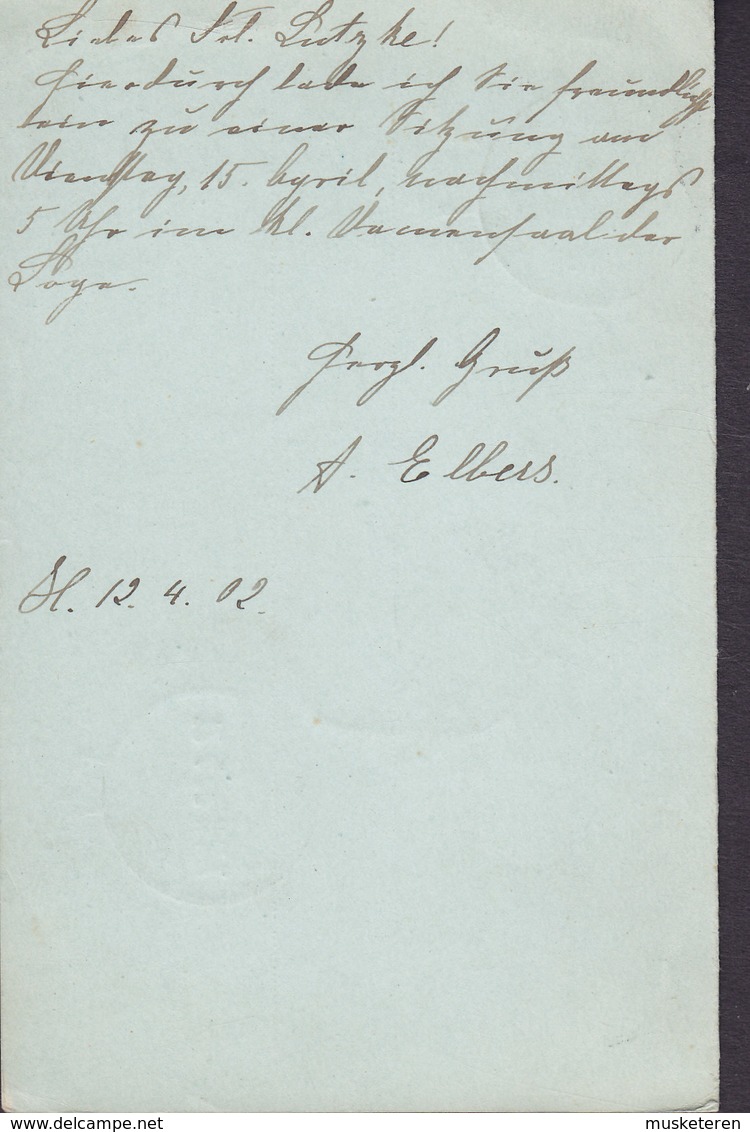 Liebes Frl. Lutzke!
Hierdurch lade ich Sie freundlichst
ein zu einer Sitzung am
Dienstag, 15. April, nachmittags
5 Uhr im kl. Damensaal der
Loge.
Herzl. Gruß
A. Elbers.
H. 12. 4. 02.
musketeren
delcampe.net